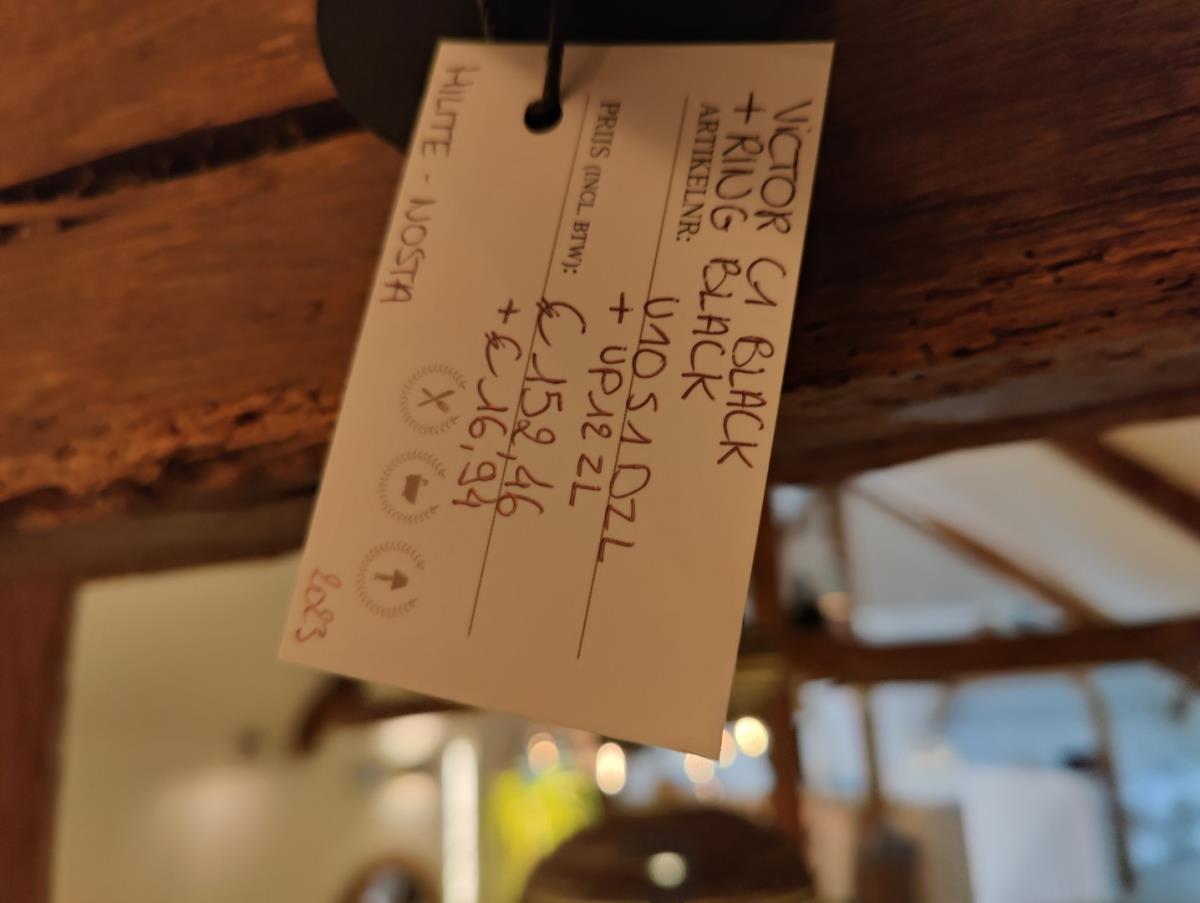 VICTOR C1 BLACK
+ RING BLACK
ARTIKELNR:
U10 S1 DZL
+ UP12 ZL
PRIJS (INCL. BTW):
€ 152,46
+ € 16,94
HILITE - NOSTA
2023